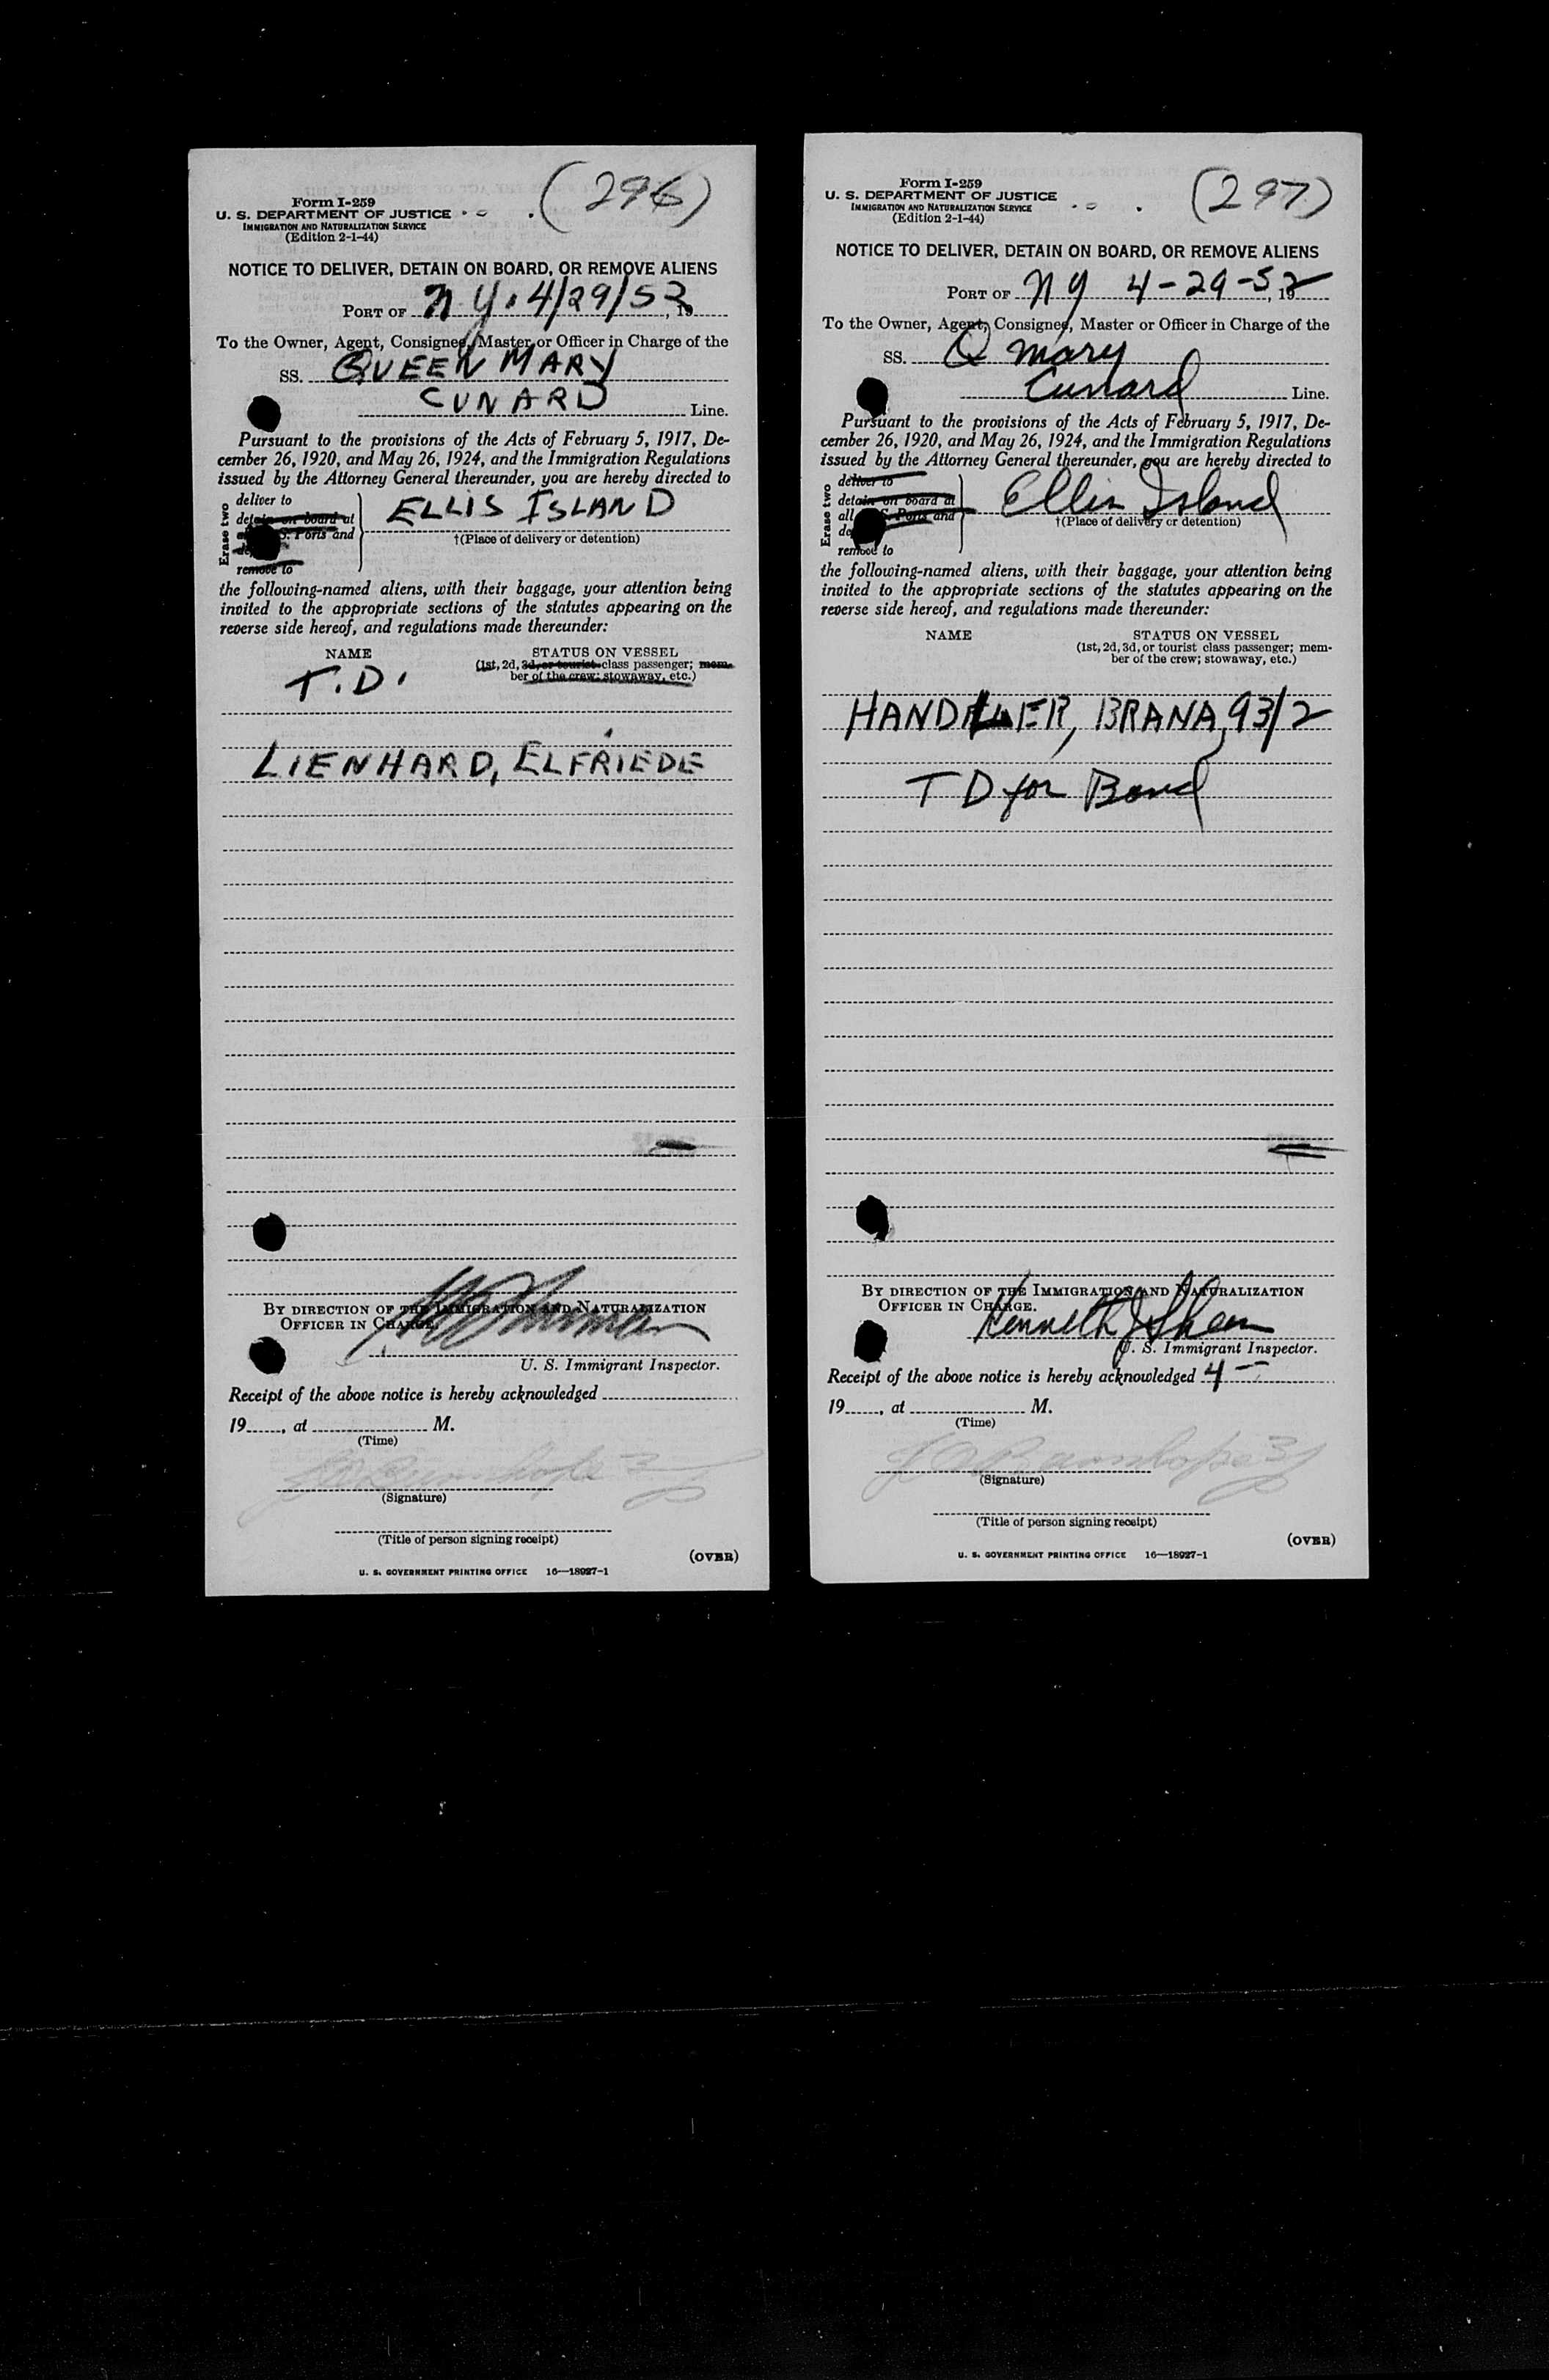 (296)
Form I-259
U. S. DEPARTMENT OF JUSTICE
IMMIGRATION AND NATURALIZATION SERVICE
(Edition 2-1-44)
NOTICE TO DELIVER, DETAIN ON BOARD, OR REMOVE ALIENS
PORT OF N Y. 4/29/52, 19
To the Owner, Agent, Consignee, Master or Officer in Charge of the
SS. QUEEN MARY
CUNARD Line.
Pursuant to the provisions of the Acts of February 5, 1917, De-
cember 26, 1920, and May 26, 1924, and the Immigration Regulations
issued by the Attorney General thereunder, you are hereby directed to
Erase two
deliver to
detain on board at
S. Ports and
remove to
ELLIS ISLAND
†(Place of delivery or detention)
the following-named aliens, with their baggage, your attention being
invited to the appropriate sections of the statutes appearing on the
reverse side hereof, and regulations made thereunder:
NAME STATUS ON VESSEL
(1st, 2d, 3d, or tourist class passenger; mem-
ber of the crew; stowaway, etc.)
T.D.
LIENHARD, ELFRIEDE
BY DIRECTION OF THE IMMIGRATION AND NATURALIZATION
OFFICER IN CHARGE.
U. S. Immigrant Inspector.
Receipt of the above notice is hereby acknowledged
19, at M.
(Time)
(Signature)
(Title of person signing receipt)
(OVER)
U. S. GOVERNMENT PRINTING OFFICE 16—18927-1
(297)
Form I-259
U. S. DEPARTMENT OF JUSTICE
IMMIGRATION AND NATURALIZATION SERVICE
(Edition 2-1-44)
NOTICE TO DELIVER, DETAIN ON BOARD, OR REMOVE ALIENS
PORT OF NY 4-29-52, 19
To the Owner, Agent, Consignee, Master or Officer in Charge of the
SS. Q Mary
Cunard Line.
Pursuant to the provisions of the Acts of February 5, 1917, De-
cember 26, 1920, and May 26, 1924, and the Immigration Regulations
issued by the Attorney General thereunder, you are hereby directed to
Erase two
deliver to
detain on board at
all S. Ports and
remove to
Ellis Island
†(Place of delivery or detention)
the following-named aliens, with their baggage, your attention being
invited to the appropriate sections of the statutes appearing on the
reverse side hereof, and regulations made thereunder:
NAME STATUS ON VESSEL
(1st, 2d, 3d, or tourist class passenger; mem-
ber of the crew; stowaway, etc.)
HANDLER, BRANA, 93/2
T D for Bond
BY DIRECTION OF THE IMMIGRATION AND NATURALIZATION
OFFICER IN CHARGE.
Kenneth J Shea
U. S. Immigrant Inspector.
Receipt of the above notice is hereby acknowledged 4
19, at M.
(Time)
(Signature)
(Title of person signing receipt)
(OVER)
U. S. GOVERNMENT PRINTING OFFICE 16—18927-1